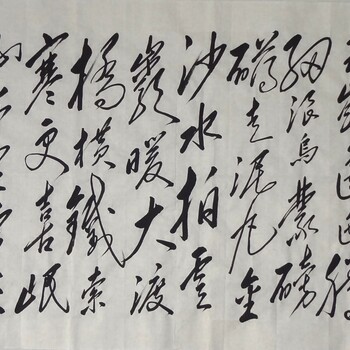 嶺逶迤騰
細浪烏蒙磅
礴走泥丸金
沙水拍雲
巖暖大渡
橋橫鐵索
寒更喜岷